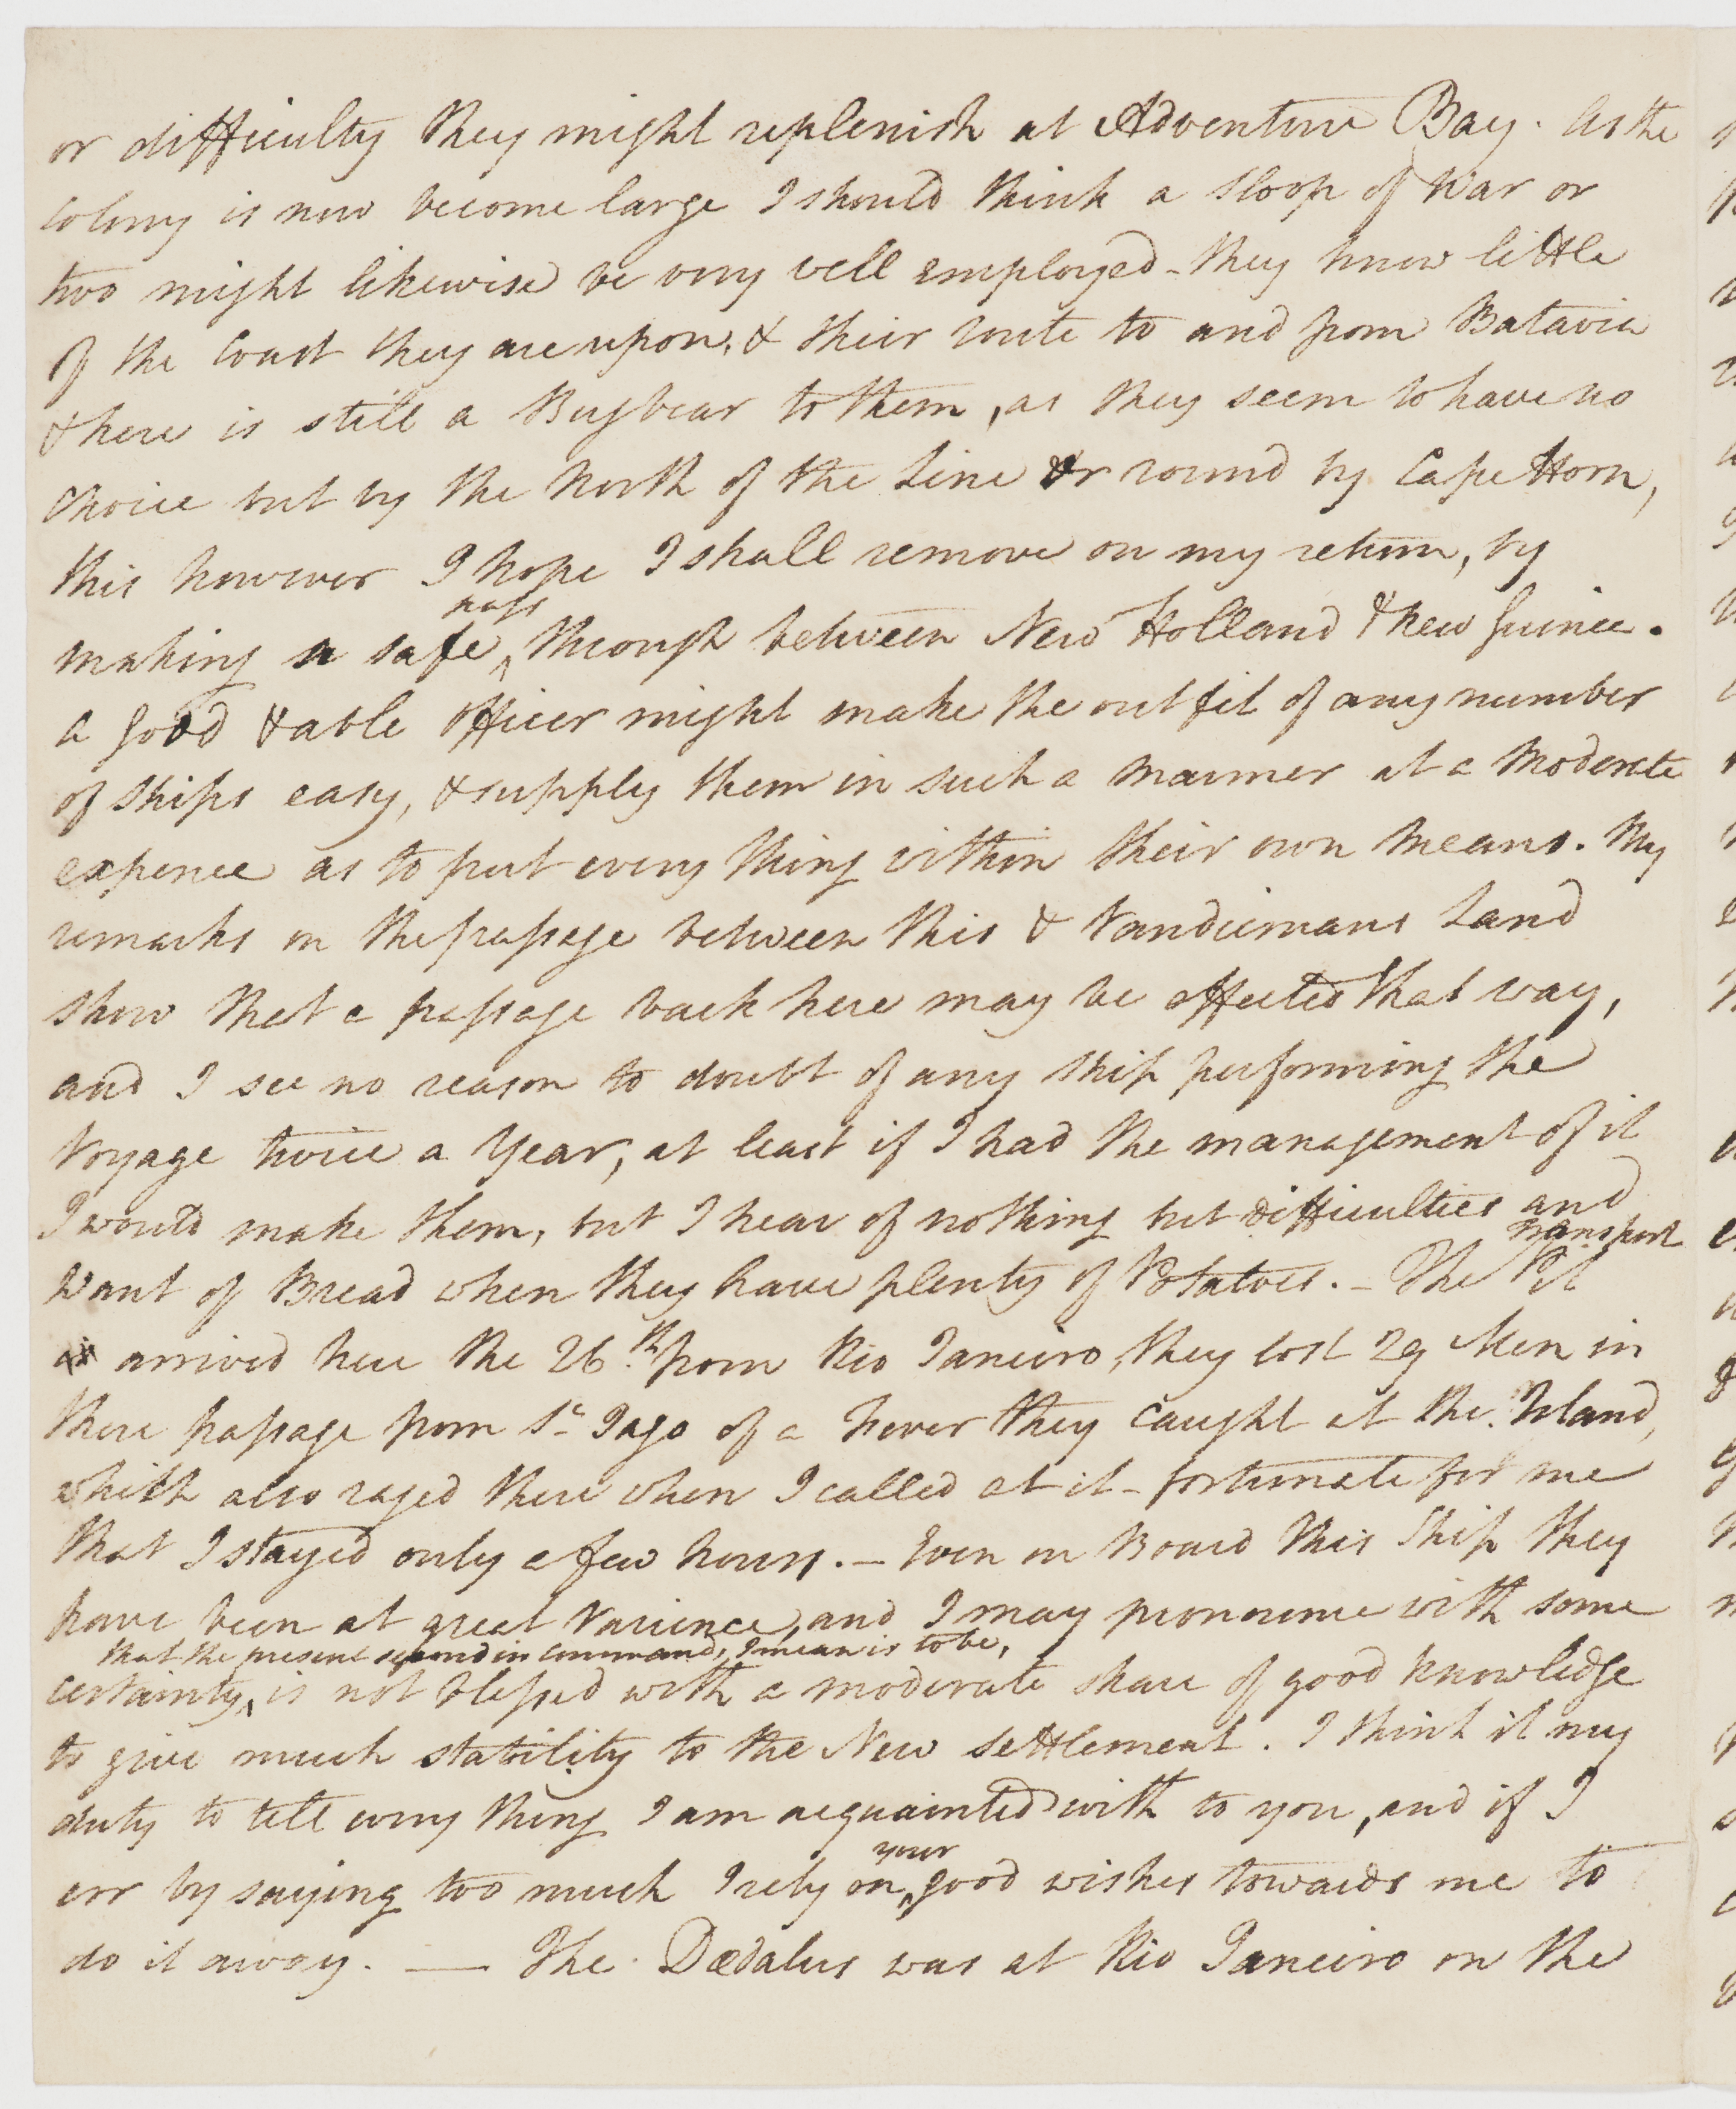 or difficulty they might replenish at Adventure Bay. As the
Colony is now become large I should think a Sloop of War or
two might likewise be very well employed - they know little
of the Coast they are upon, & their route to and from Batavia
& here is still a Bugbear to them, as they seem to have no
choice but by the North of the Line or round by Cape Horn,
this however I hope I shall remove on my return, by
pass
making a safe ^ through between New Holland & New Guinea.
a good & able officer might make the outfit of any number
of Ships easy, & supply them in such a manner at a Moderate
expence as to put every thing within their own Means. My
remarks on the passage between this & Vandiemans Land
show that a passage back here may be effected that way,
and I see no reason to doubt of any Ship performing the
Voyage twice a Year, at least if I had the management of it
I would make them, but I hear of nothing but difficulties and
transport
Want of Bread when they have plenty of Potatoes. - The Pit
arrived here the 26th from Rio Janeiro, they lost 29 Men in
there passage from St Jago of a Fever they caught at the Island,
which also raged there when I called at it - fortunate for me
that I stayed only a few hours. - Even on Board this Ship they
have been at great Varience, and I may pronounce with some
that the present second in command, I mean is to be,
certainty ^ is not blessed with a moderate share of good knowledge
to give much stability to the New Settlement. I think it my
duty to tell every thing I am acquainted with to you, and if I
your
err by saying too much I rely on ^ good wishes towards me to
do it away. — The Dædalus was at Rio Janeiro on the